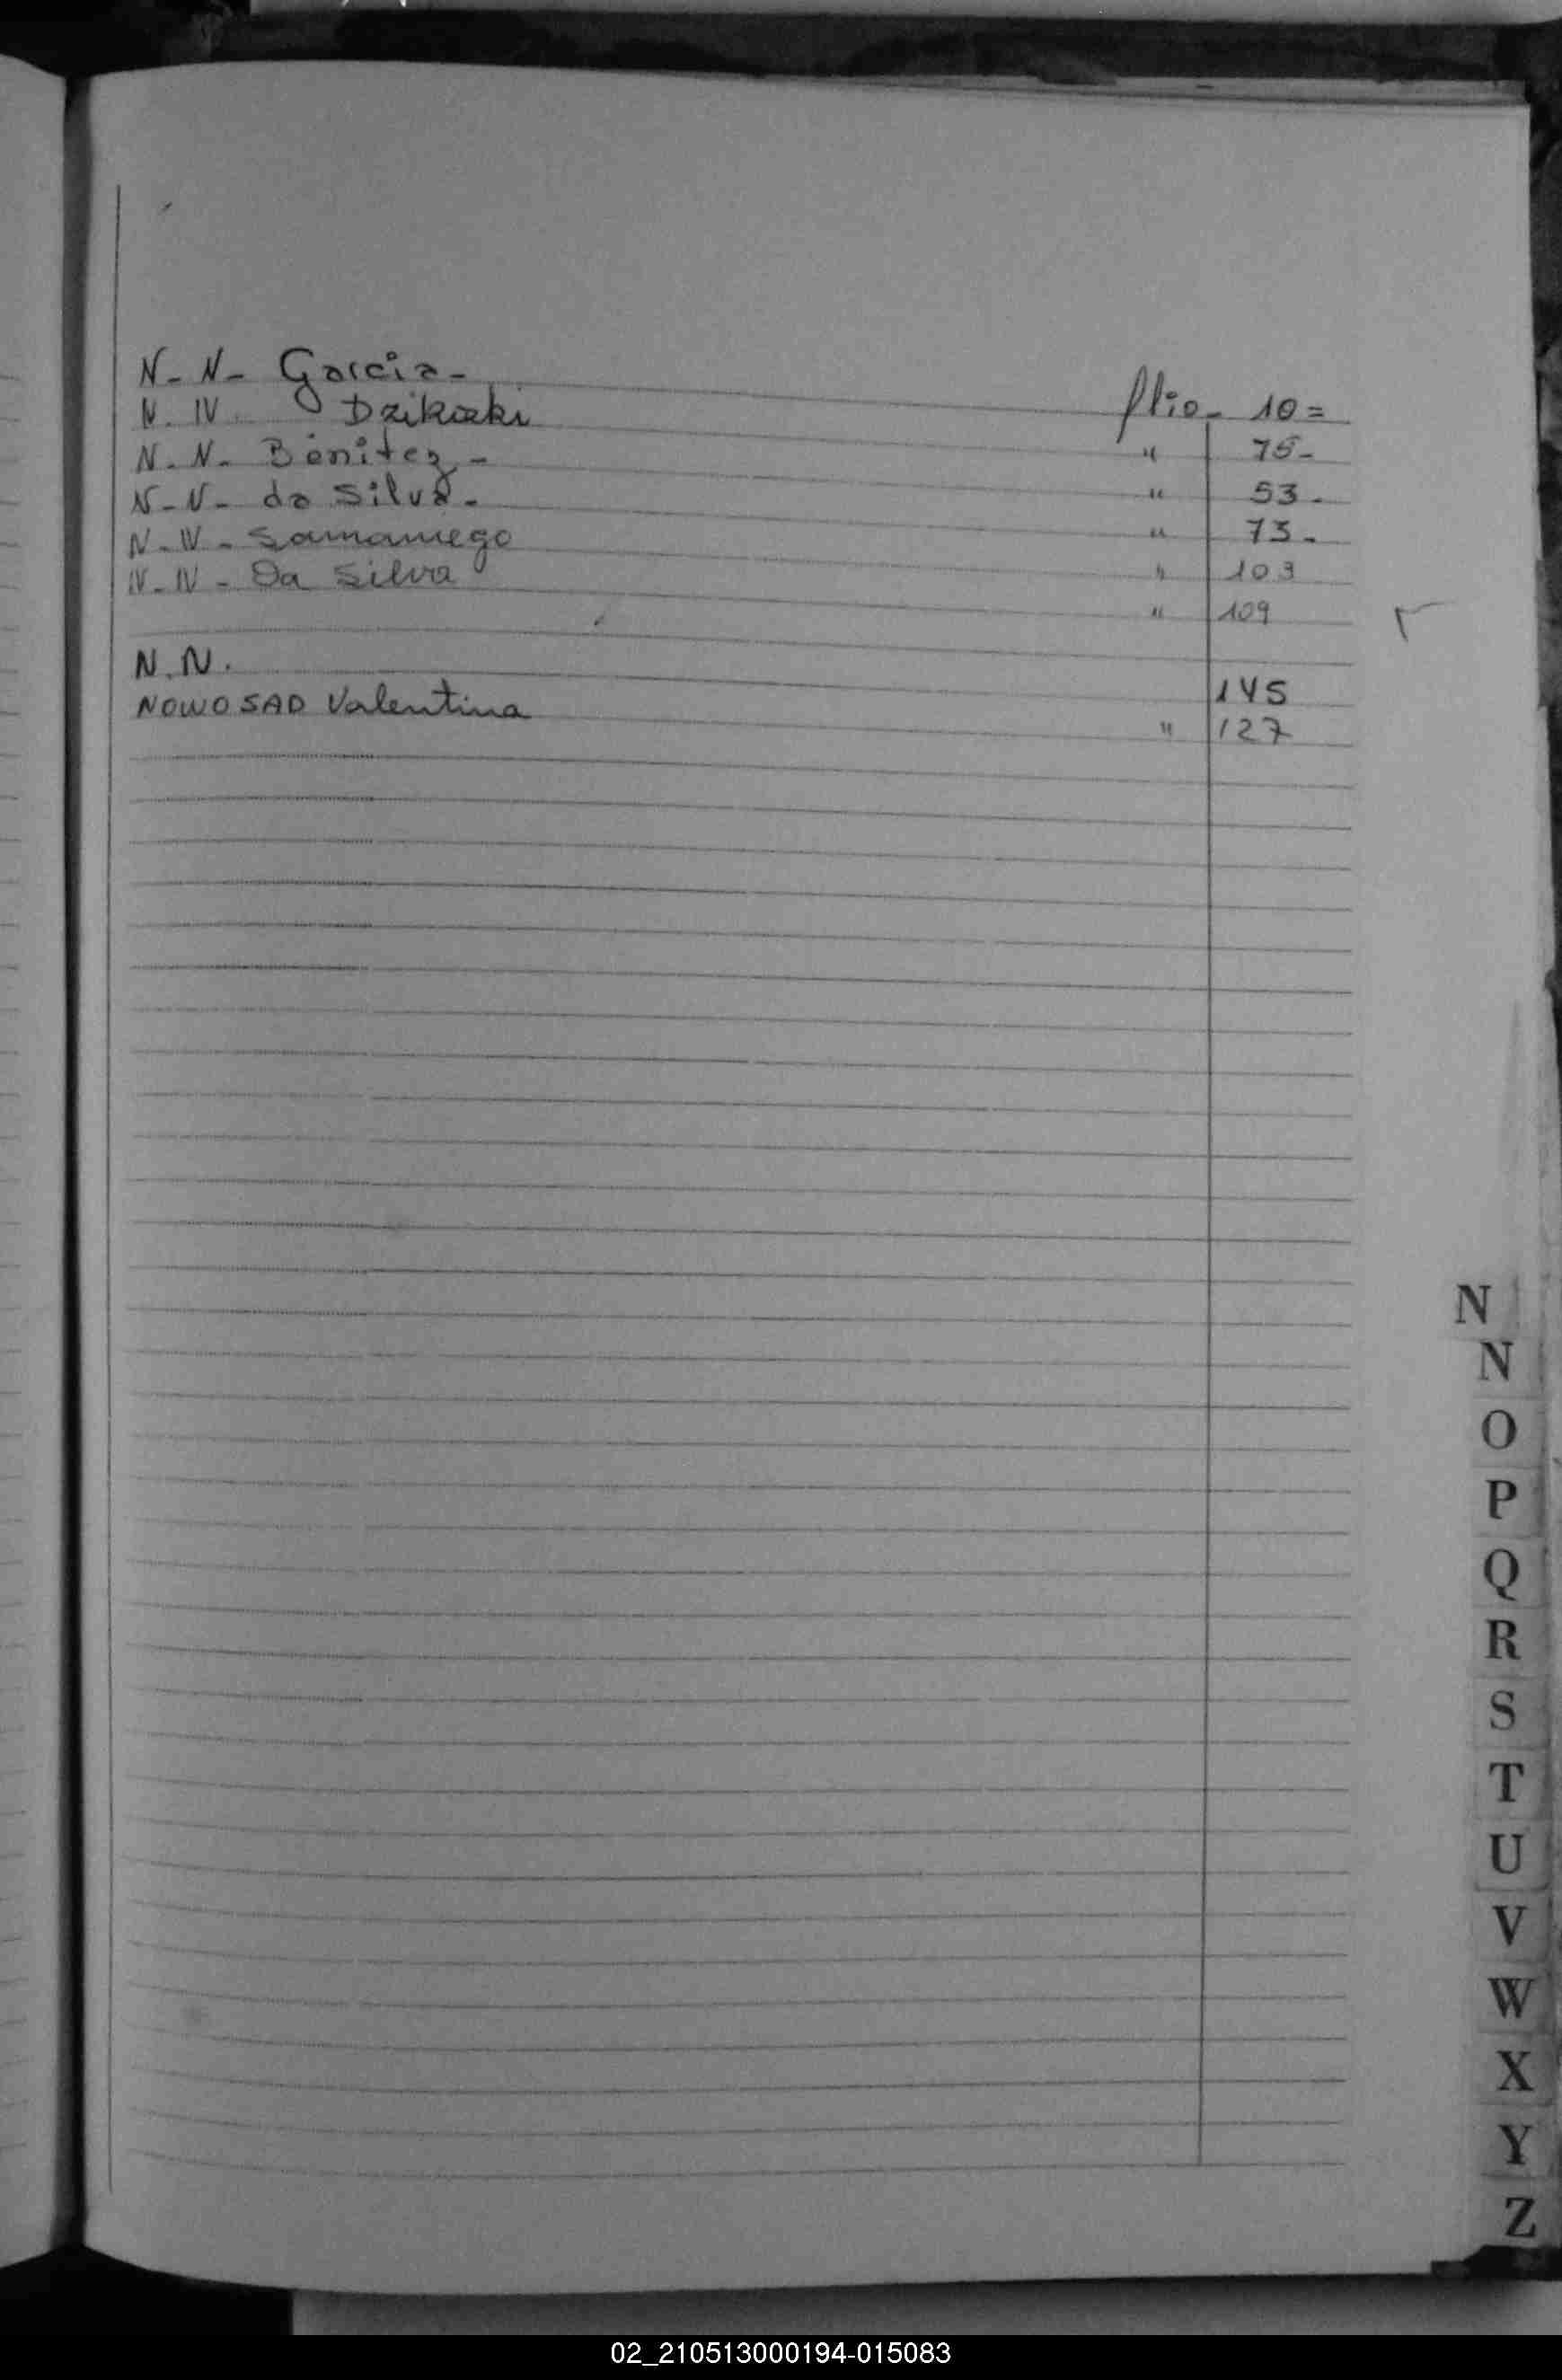 N-N- Garcia- flio- 10=
N. N. Dzikoski " 75-
N.N. Bénitez- " 53.
N-N- da Silva. " 73.
N-N- Samaniego " 103
N-N- Da Silva " 109
N.N. 145
NOWOSAD Valentina " 127
N
N
O
P
Q
R
S
T
U
V
W
X
Y
Z
02_210513000194-015083